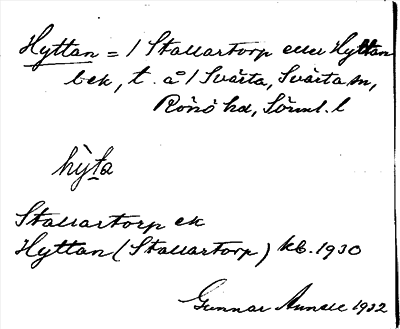 Hyttan = / Stallartorp eller Hyttan
bek, t. å / Svärta, Svärta sn,
Rönö hd, Söml. l
hỳta
Stallartorp ek
Hyttan (Stallartorp) kb. 1930
Gunnar 1932